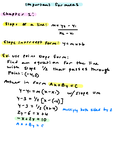 Important Formulas
Chapter 2:
Slope of a line: m = y₂ - y₁
x₂ - x₁
Slope intercept form: y = mx + b
Ex. use point slope form:
Find an equation for the line
with slope 1/2 that passes through
Point: (-4,3)
Answer in form Ax+By=C
y-y₁ = m(x-x₁) w/ slope = m
y-3 = 1/2 [x-(-4)]
y-3 = 1/2 (x+4) multiply both sides by 2
2y-6 = x+4
-x+2y = 10
Ax+By = C